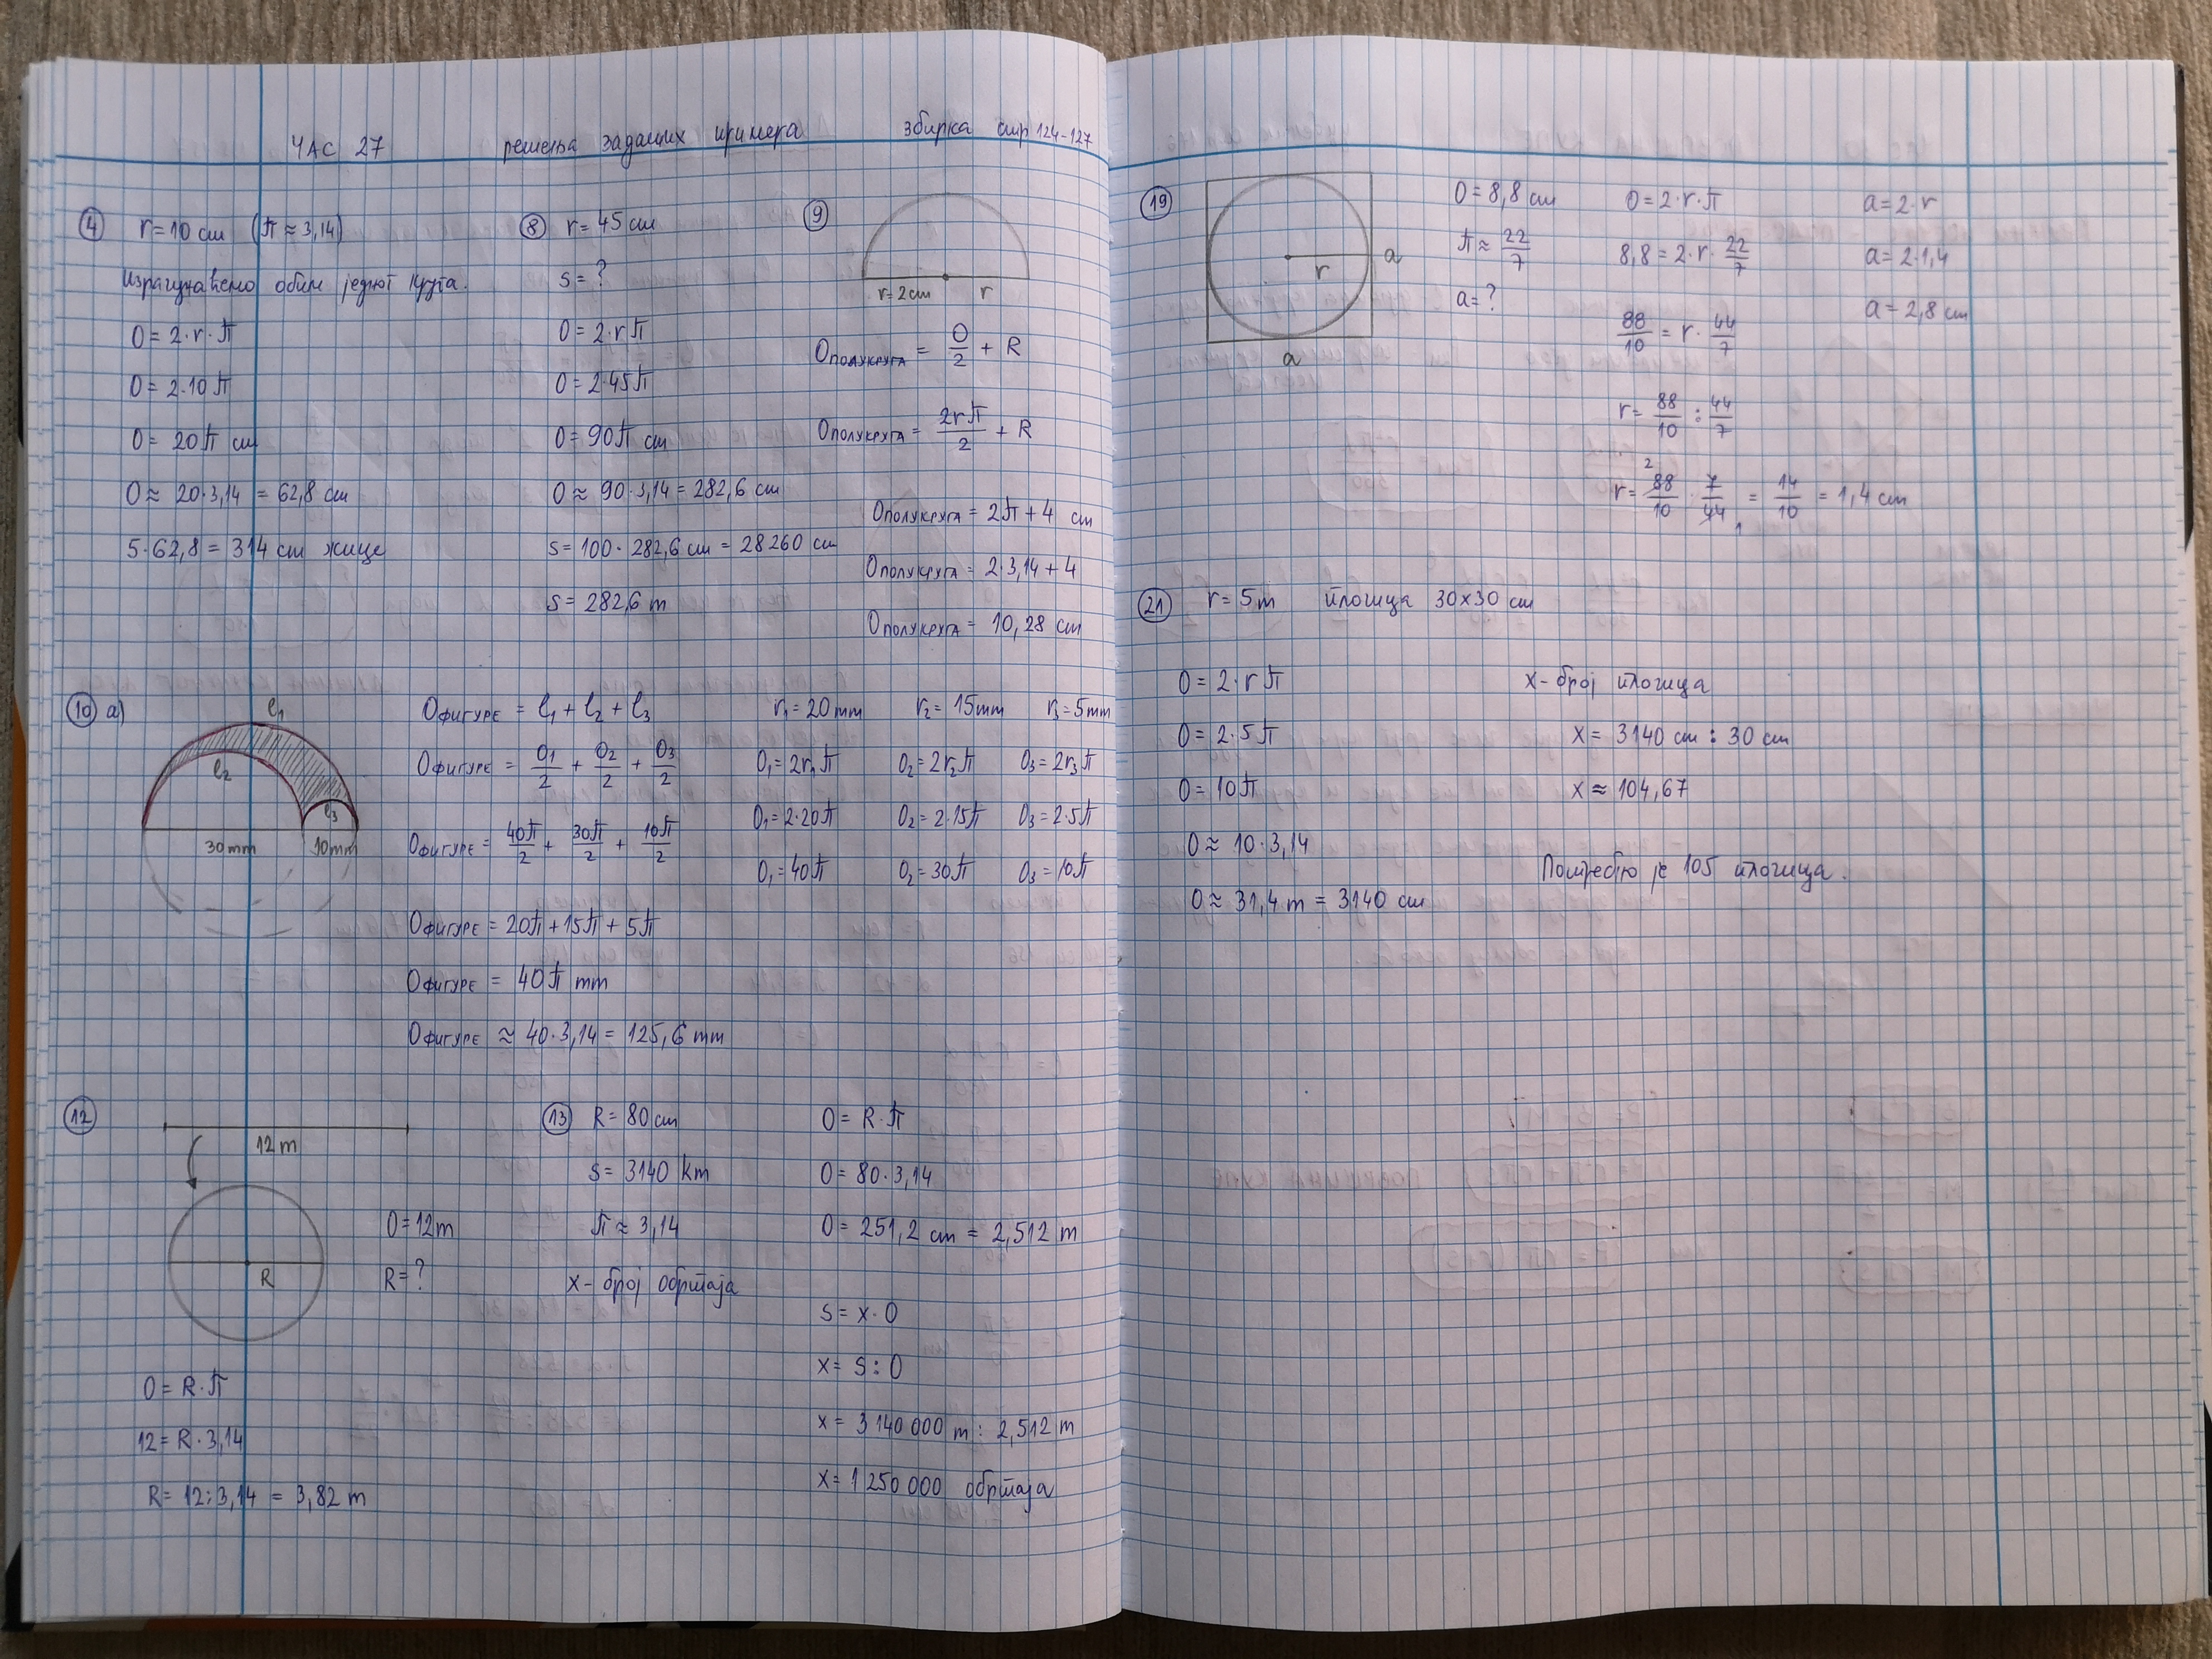 ЧАС 27 решења задатих примера збирка стр 124-127
4 r = 10 cm (π ≈ 3,14)
Израчунаћемо обим једног круга.
O = 2·r·π
O = 2·10π
O = 20π cm
O ≈ 20·3,14 = 62,8 cm
5·62,8 = 314 cm жице
8 r = 45 cm
s = ?
O = 2·rπ
O = 2·45π
O = 90π cm
O ≈ 90·3,14 = 282,6 cm
s = 100·282,6 cm = 28260 cm
s = 282,6 m
9
r = 2cm r
Oполукруга = O/2 + R
Oполукруга = 2rπ/2 + R
Oполукруга = 2π + 4 cm
Oполукруга = 2·3,14 + 4
Oполукруга = 10,28 cm
10 а)
l1
l2
l3
30mm 10mm
Oфигуре = l1 + l2 + l3
Oфигуре = O1/2 + O2/2 + O3/2
Oфигуре = 40π/2 + 30π/2 + 10π/2
Oфигуре = 20π + 15π + 5π
Oфигуре = 40π mm
Oфигуре ≈ 40·3,14 = 125,6 mm
r1 = 20mm r2 = 15mm r3 = 5mm
O1 = 2r1π O2 = 2r2π O3 = 2r3π
O1 = 2·20π O2 = 2·15π O3 = 2·5π
O1 = 40π O2 = 30π O3 = 10π
12
12 m
R
O = 12m
R = ?
O = R·π
12 = R·3,14
R = 12:3,14 = 3,82 m
13 R = 80cm
s = 3140 km
π ≈ 3,14
x - број обртаја
O = R·π
O = 80·3,14
O = 251,2 cm = 2,512 m
s = x·O
x = s:O
x = 3 140 000 m : 2,512 m
x = 1 250 000 обртаја
19
r
a
a
O = 8,8 cm
π ≈ 22/7
a = ?
O = 2·r·π
8,8 = 2·r·22/7
88/10 = r·44/7
r = 88/10 : 44/7
2
r = 88/10 · 7/44 = 14/10 = 1,4 cm
1
a = 2·r
a = 2·1,4
a = 2,8 cm
21 r = 5m плочица 30x30 cm
O = 2·rπ
O = 2·5π
O = 10π
O ≈ 10·3,14
O ≈ 31,4 m = 3140 cm
x - број плочица
x = 3140 cm : 30 cm
x ≈ 104,67
Потребно је 105 плочица.